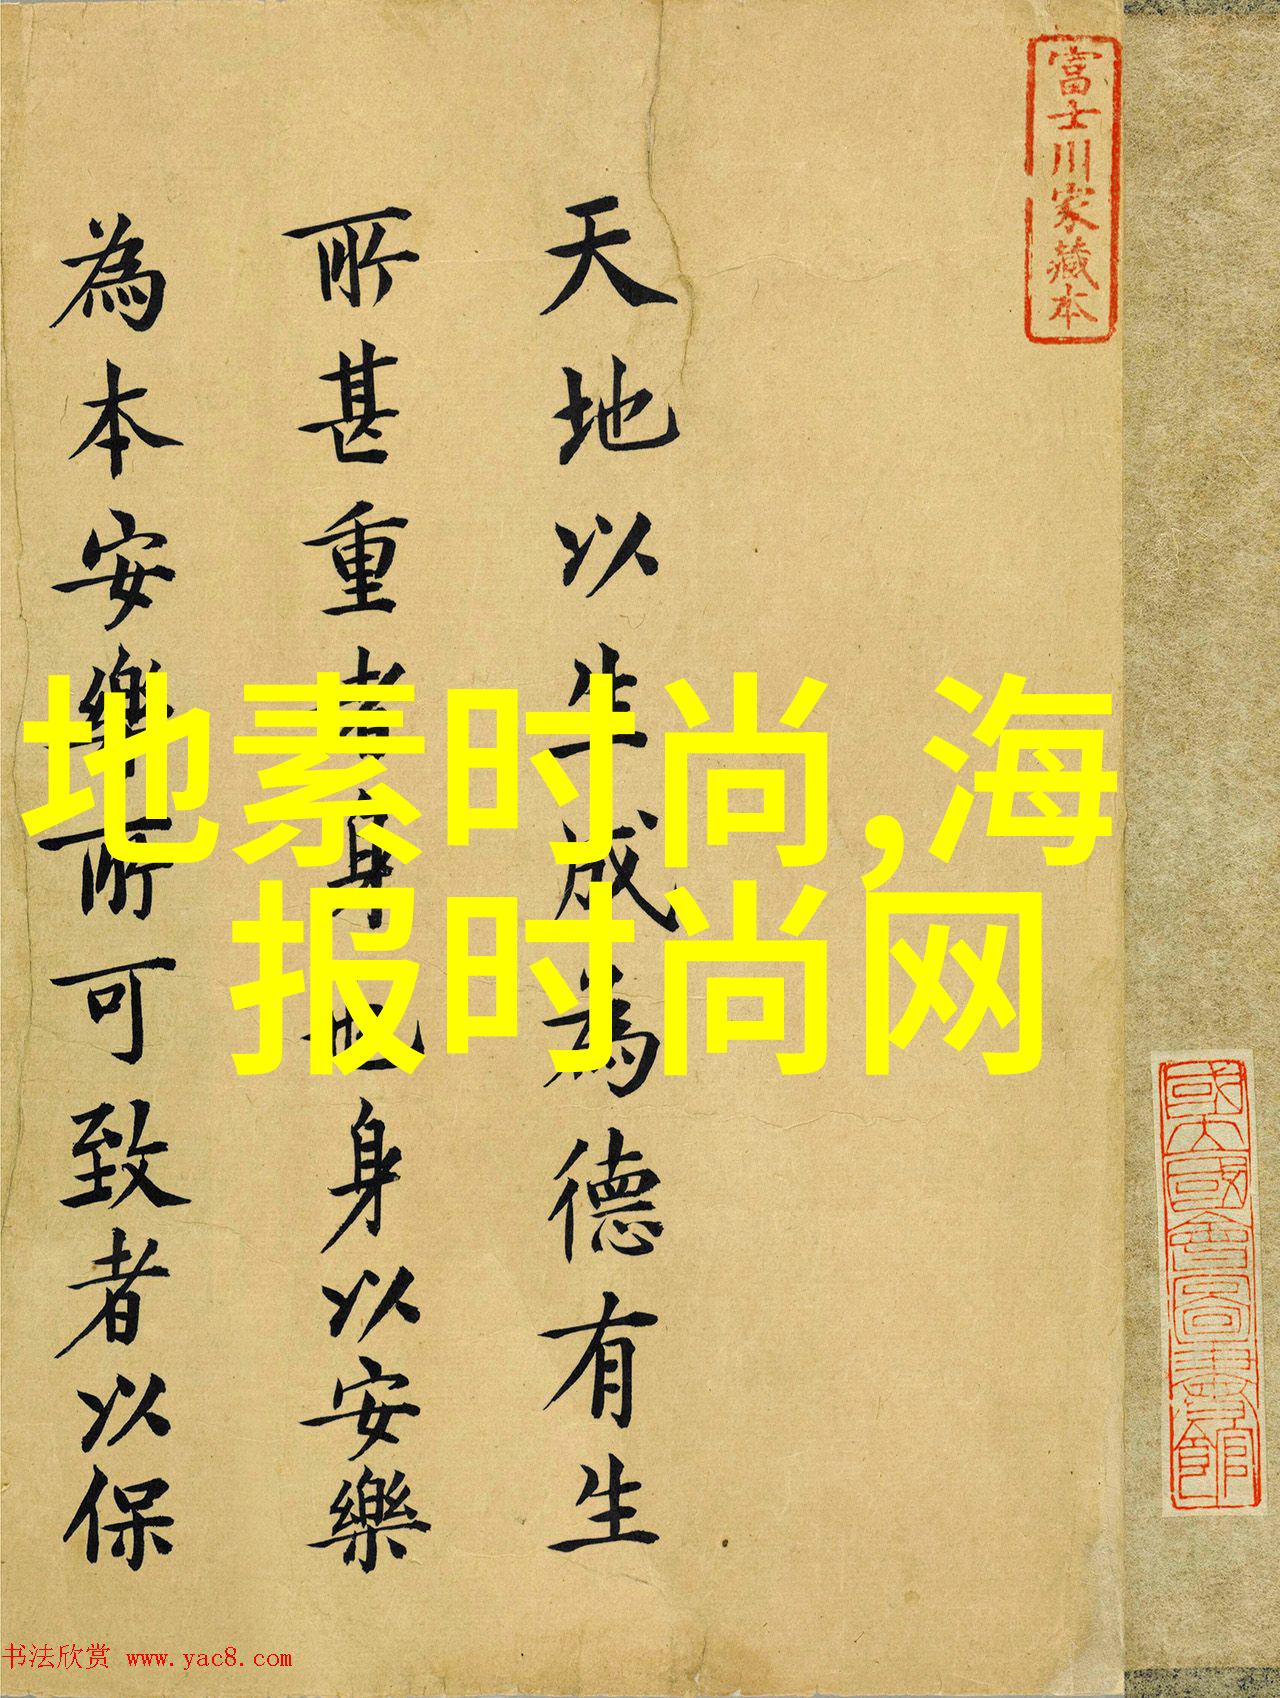 富士川家藏本
天地以生成為德有生
所甚重者身也身以安樂
為本安樂所可致者以保
地素时尚,海
报时尚网
國立國會圖書館
书法欣赏 www.yac8.com